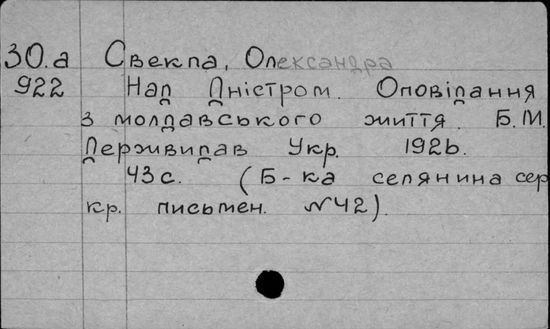 30.а Свекла, Олександра
922 Над Дністром. Оповідання
з молдавського життя. Б.М.
Держвидав Укр. 1926.
43 с. (Б-ка селянина сер
кр. письмен. №42).